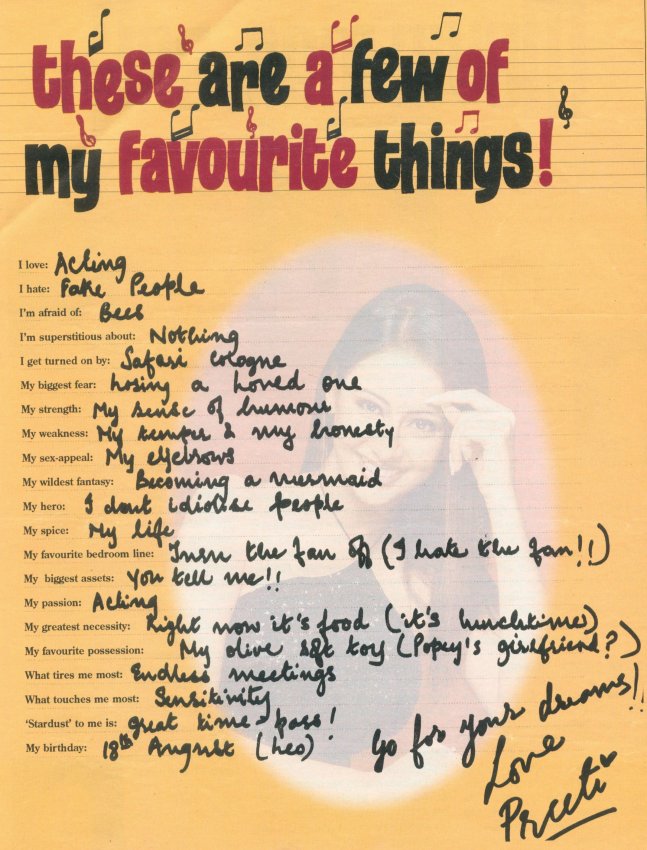 these are a few of
my favourite things!
I love: Acting
I hate: Fake People
I'm afraid of: Bees
I'm superstitious about: Nothing
I get turned on by: Safari cologne
My biggest fear: Losing a Loved one
My strength: My sense of humour
My weakness: My temper & my honesty
My sex-appeal: My eyebrows
My wildest fantasy: Becoming a mermaid
My hero: I dont idiolise people
My spice: My life
My favourite bedroom line: Turn the fan off (I hate the fan!!)
My biggest assets: You tell me!!
My passion: Acting
My greatest necessity: Right now it's food (it's lunchtime)
My favourite possession: My olive soft toy (Popey's girlfriend?)
What tires me most: Endless meetings
What touches me most: Sensitivity
'Stardust' to me is: great time-pass!
My birthday: 18th August (Leo)
Go for your dreams!!
Love
Preeti